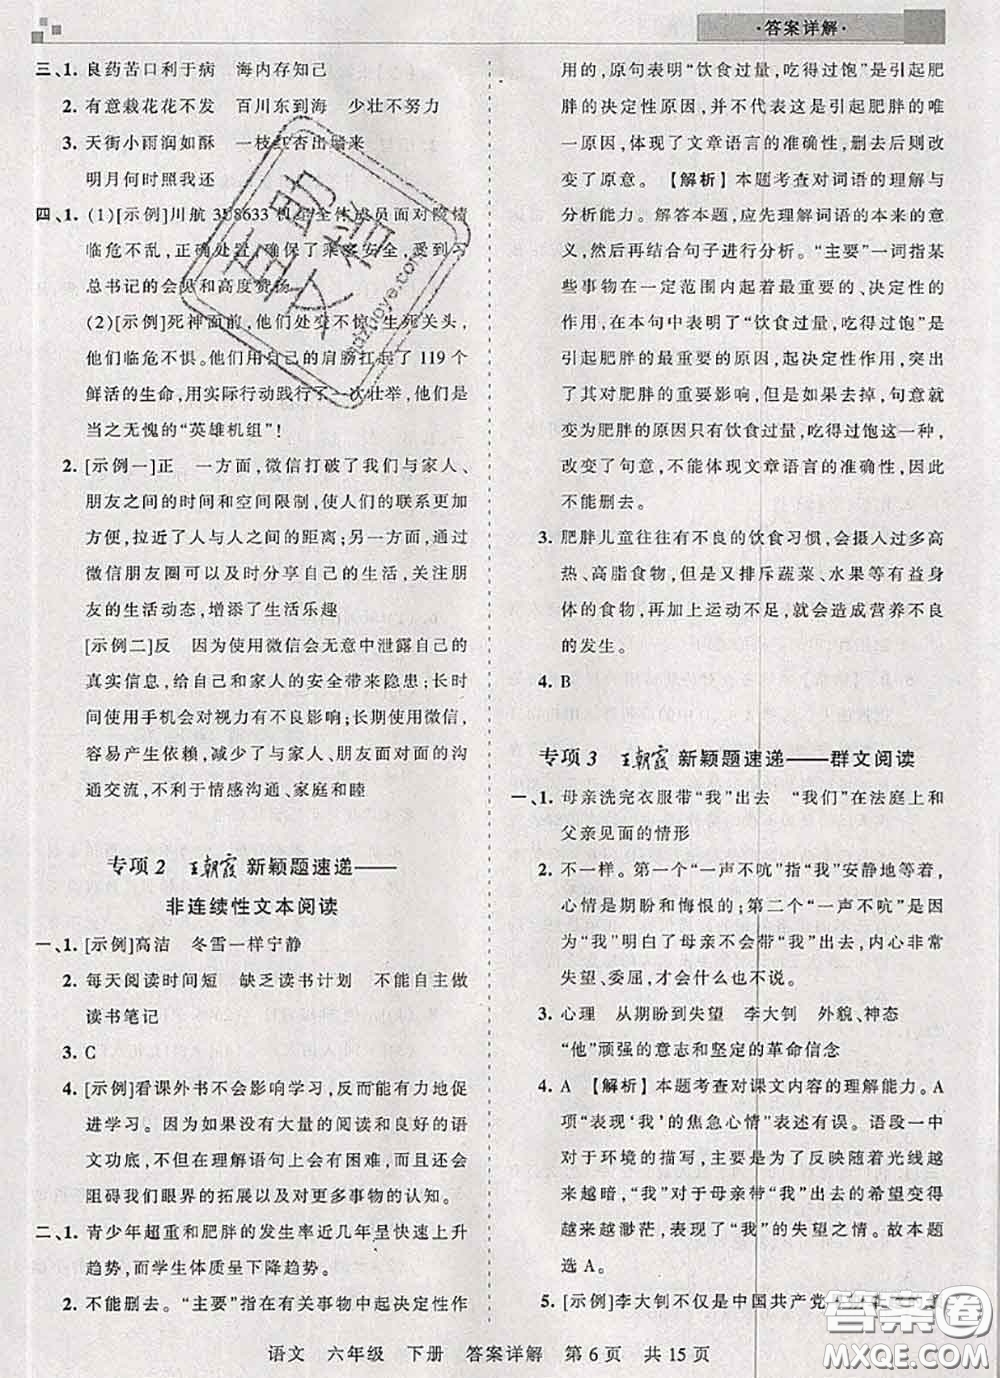 ·答案详解·
三、1. 良药苦口利于病 海内存知己
2. 有意栽花花不发 百川东到海 少壮不努力
3. 天街小雨润如酥 一枝红杏出墙来
明月何时照我还
四、1. (1)[示例]川航 3U8633 机组全体成员面对险情
临危不乱,正确处置,确保了乘客安全,受到习
总书记的会见和高度赞扬
(2)[示例]死神面前,他们处变不惊,生死关头,
他们临危不惧。他们用自己的肩膀扛起了 119 个
鲜活的生命,用实际行动践行了一次壮举,他们是
当之无愧的“英雄机组”!
2. [示例一]正 一方面,微信打破了我们与家人、
朋友之间的时间和空间限制,使人们的联系更加
方便,拉近了人与人之间的距离;另一方面,通过
微信朋友圈可以及时分享自己的生活,关注朋
友的生活动态,增添了生活乐趣
[示例二]反 因为使用微信会无意中泄露自己的
真实信息,给自己和家人的安全带来隐患;长时
间使用手机会对视力有不良影响;长期使用微信,
容易产生依赖,减少了与家人、朋友面对面的沟
通交流,不利于情感沟通、家庭和睦
专项2 王朝霞 新颖题速递——
非连续性文本阅读
一、1. [示例]高洁 冬雪一样宁静
2. 每天阅读时间短 缺乏读书计划 不能自主做
读书笔记
3. C
4. [示例]看课外书不会影响学习,反而有能力促
进学习。因为如果没有大量的阅读和良好的语
文功底,不但在理解语句上会有困难,而且还会
阻碍我们眼界的拓展以及对更多事物的认知。
二、1. 青少年超重和肥胖的发生率近几年呈快速上升
趋势,而学生体质量呈下降趋势。
2. 不能删去。“主要”指在有关事物中起决定性作
用的,原句表明“饮食过量,吃得过饱”是引起肥
胖的决定性原因,并不代表这是引发肥胖的唯
一原因,体现了文章语言的准确性,删去后则改
变了原意。 【解析】本题考查对词语的理解与
分析能力。解答本题,应先理解词语的本来的意
义,然后再结合句子进行分析。“主要”一词指某
些事物在一定范围内起着最重要的、决定性的
作用,在本句中表明了“饮食过量,吃得过饱”是
引起肥胖的最重要的原因,起决定性作用,突出
了其对肥胖的重要影响,但如果删去,句意就
变为肥胖的原因只有饮食过量,吃得过饱这一种,
改变了句意,不能体现文章语言的准确性,因此
不能删去。
3. 肥胖儿童往往有不良的饮食习惯,会摄入过多高
热、高脂食物,但又排斥蔬菜、水果等有益身
体的食物,再加上运动不足,就会造成营养不良
的发生。
4. B
专项3 王朝霞 新颖题速递——群文阅读
一、1. 母亲洗完衣服带“我”出去 “我们”在法庭上和
父亲见面的情形
2. 不一样。第一个“一声不吭”指“我”安静地等着,
心情是期盼和悔恨的;第二个“一声不吭”是
因为“我”明白了母亲不会带“我”出去,内心非常
失望、委屈,甚至什么也不说。
3. 心理 从期盼到失望 李大钊 外貌、神态
“他”顽强的意志和坚定的革命信念
4. A 【解析】本题考查对课文内容的理解能力。A
项“表现‘我’的焦急心情”表述有误。语段一中
对于环境的描写,主要是为了反映随着光线越
来越暗,“我”对于母亲带“我”出去的希望变得
越来越渺茫,表现了“我”的失望之情。故本题
选A。
5. [示例]李大钊不仅是中国共产党
语文 六年级 下册 答案详解 第 6 页 共 15 页
互助文楷
答案圈
MXQE.COM